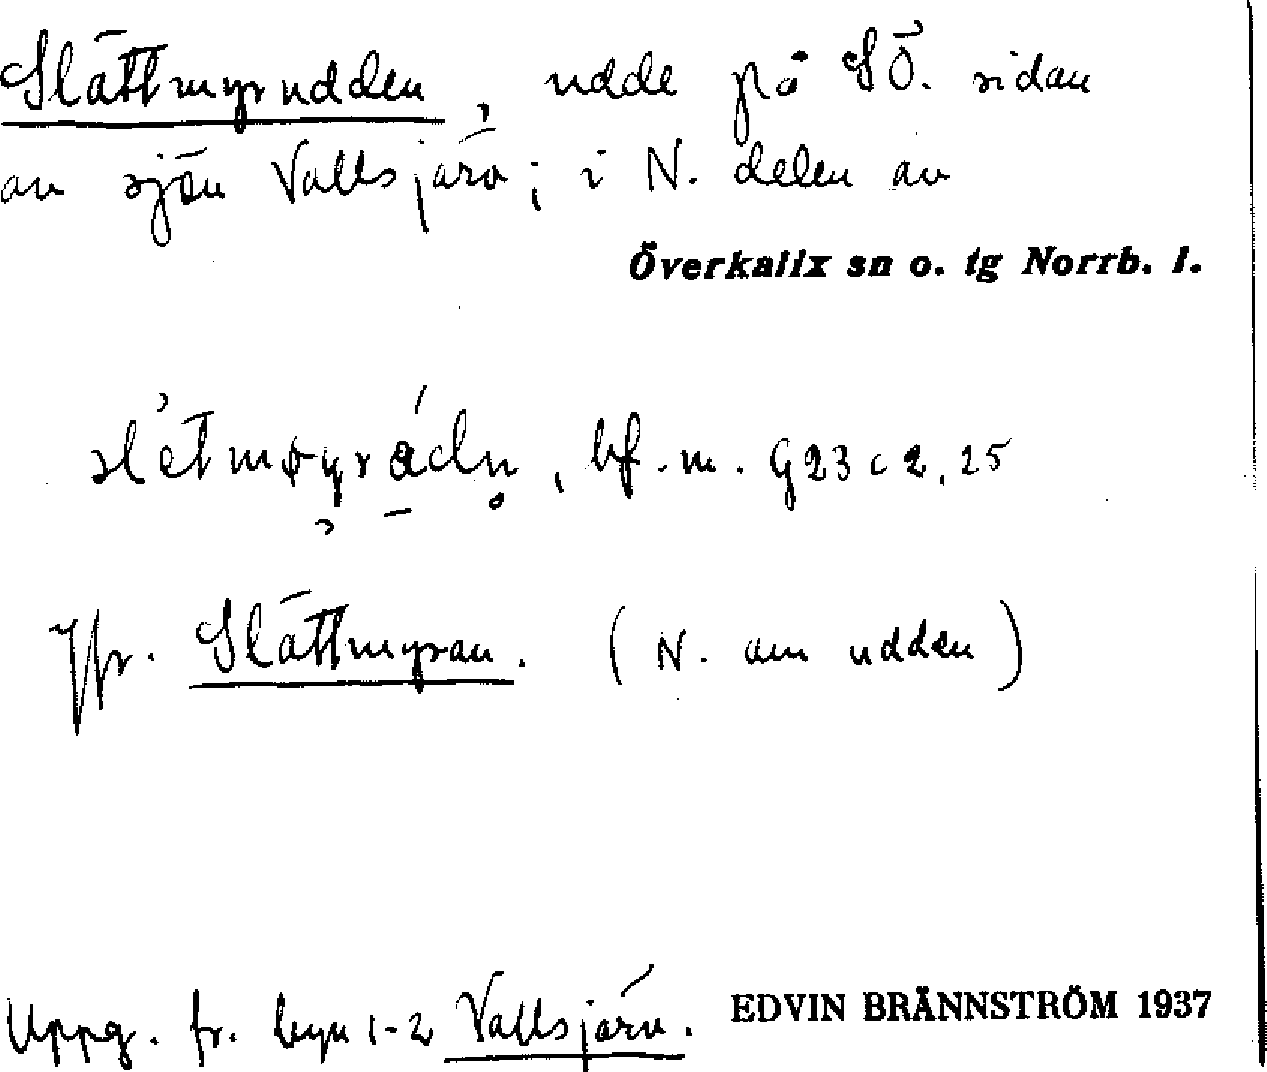 Slåttmyrudden, udde på SÖ. sidan
av sjön Vallsjärv; i N. delen av
Överkalix sn o. tg Norrb. l.
bf. m. G23 c 2, 25
Jfr. Slåttmyran. (N. om udden)
Uppg. fr. byn 1-2 Vallsjärv. EDVIN BRÄNNSTRÖM 1937